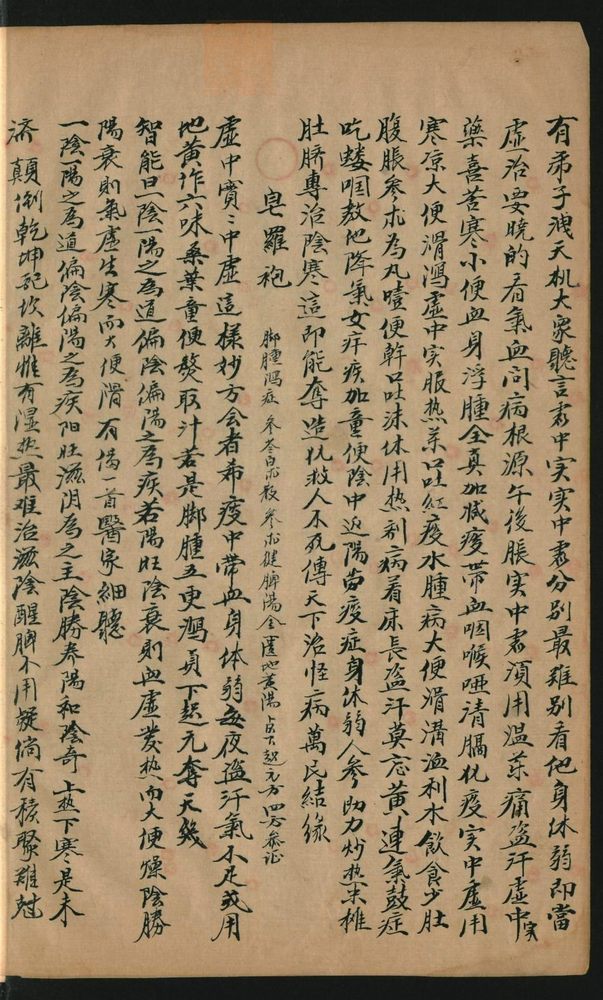 有弟子洩天机大衆聽言虛中实实中虛分別最难別看他身体弱即當
虛治要曉的看氣血问病根源午後脹实中虛須用温药痛盗汗虛中实
藥喜苦寒小便血身浮腫全真加减痰带血咽喉哑清膈化痰实中虛用
寒凉大便滑瀉虛中实服热药口吐紅痰水腫病大便滑溝溢利水飲食少肚
腹脹参朮為丸噎便幹口吐沫休用热剂病着床長盗汗莫忘黄連氣鼓症
吃蝼蝈敖他降氣女奸疾加童便陰中返陽劳痰症身体弱人参助力炒热末椎
肚臍專治陰寒這即能奪造化救人不死傳天下治怪病萬民結缘
皂羅袍 脚腫瀉症 参苓白朮散 参朮健脾湯 金匱地黄湯 貞下起元方 四方参证
虛中實〻中虛這樣妙方会者希痰中帶血身体弱每夜盗汗氣不足或用
地黄作六味桑葉童便熬取汁若是脚腫五更瀉貞下起元奪天幾
智能曰一陰一陽之為道偏陰偏陽之為疾若陽旺陰衰則血虛發热而大便燥陰勝
陽衰則氣虛生寒而大便滑有偈一首醫家細聽
一陰一陽之為道偏陰偏陽之為疾阳旺滋阴為之主陰勝养陽和陰奇上热下寒是未
济顛倒乾坤配坎離惟有湿热最难治滋陰醒脾不用疑倘有積聚難尅